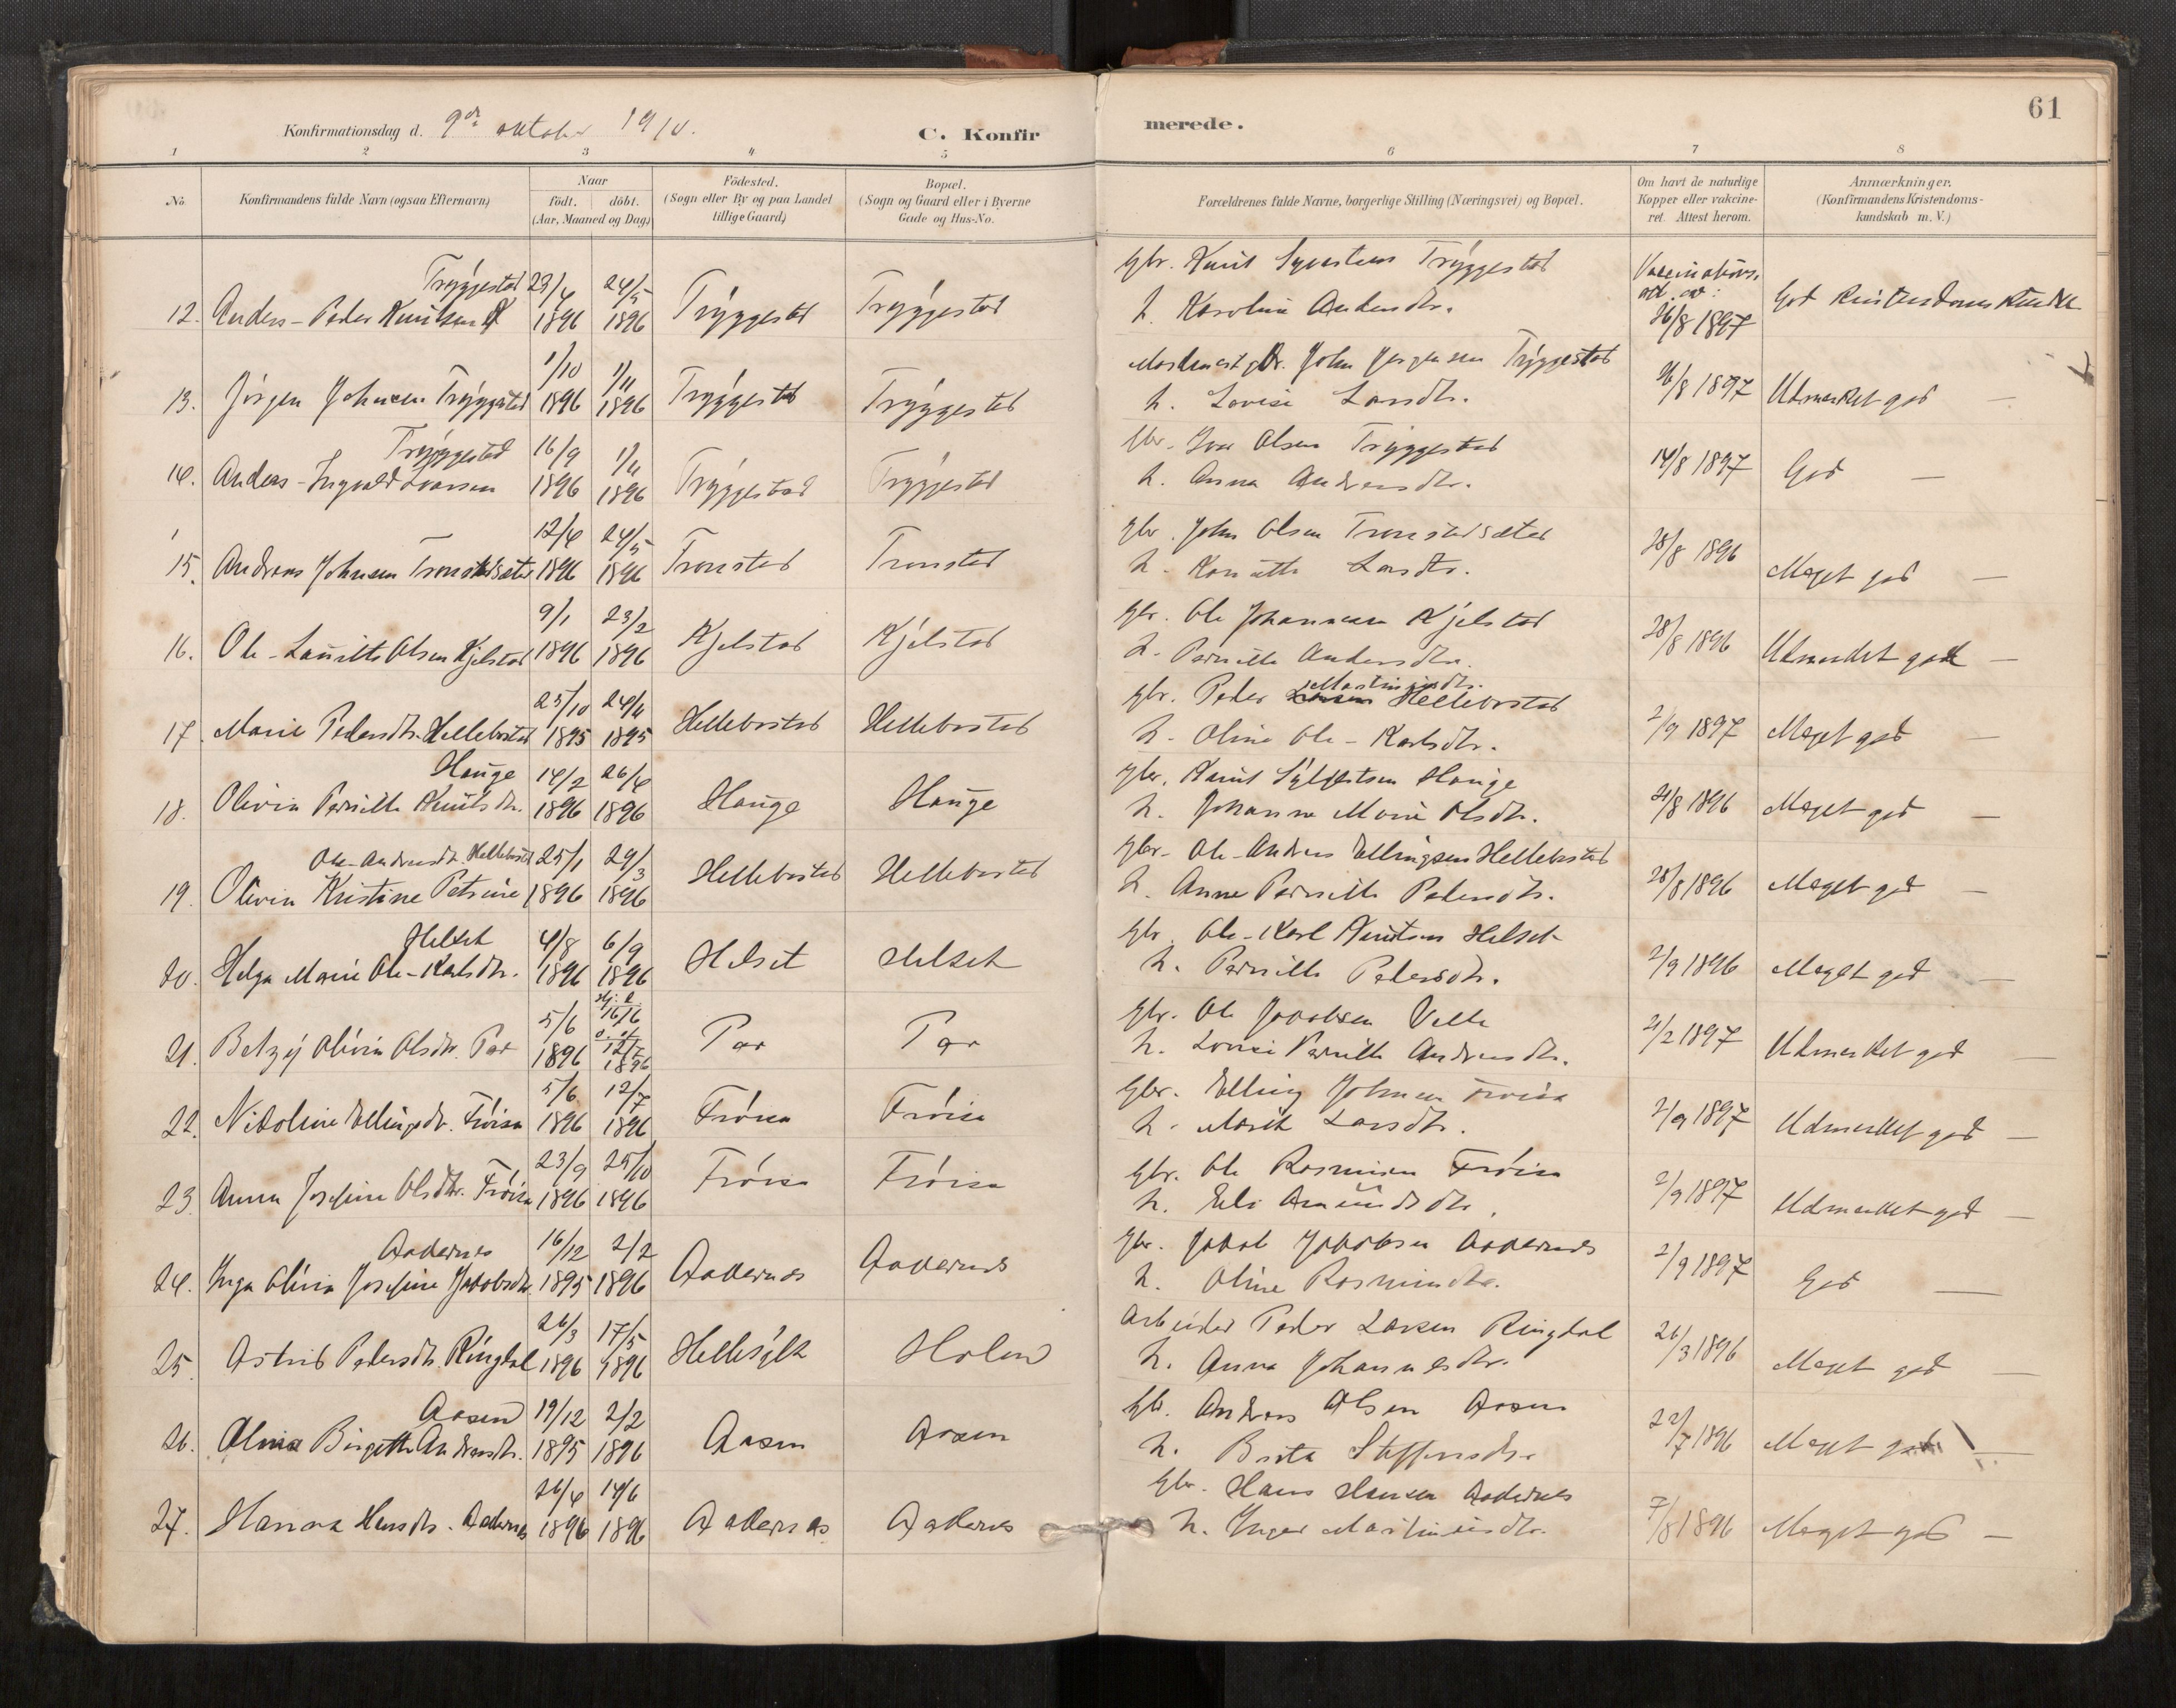 61
Konfirmationsdag d. 9de oktober 1910.
C. Konfirmerede.
1 2 3 4 5 6 7 8
No.
Konfirmandens fulde Navn (ogsaa Efternavn)
Naar
födt. döbt.
(Aar, Maaned og Dag)
Födested.
(Sogn eller By og paa Landet
tillige Gaard)
Bopæl.
(Sogn og Gaard eller i Byerne
Gade og Hus-No.
Forældrenes fulde Navne, borgerlige Stilling (Næringsvei) og Bopæl.
Om havt de naturlige
Kopper eller vakcine-
ret. Attest herom.
Anmærkninger.
(Konfirmandens Kristendoms-
kundskab m. V.)
Tryggestad 23/4 24/5 Gbr. Knut Syvertsen Tryggestad Vaccinations.
12. Anders-Peder Knutsen 1896 1896 Tryggestad Tryggestad h. Karoline Andersdtr. 26/8 1897 God Kristendomskundsk
1/10 1/11 Gbr. John Jørgensen Tryggestad
13. Jørgen Johnsen Tryggestad 1896 1896 Tryggestad Tryggestad h. Lovise Larsdtr. 26/8 1897 Udmerket god —
Tryggestad 16/9 1/11 Gbr. Ivar Olsen Tryggestad
14. Anders-Ingvald Ivarsen 1896 1896 Tryggestad Tryggestad h. Anna Andersdtr. 14/8 1897 God —
12/4 24/5 Gbr. John Olsen Tronstadsæter
15. Andreas Johnsen Tronstadsæter 1896 1896 Tronstad Tronstad h. Larsdtr. 28/8 1896 Meget god —
9/1 23/2 Gbr. Ole Johannesen Kjelstad
16. Ole-Laurits Olsen Kjelstad 1896 1896 Kjelstad Kjelstad h. Pernille Andersdtr. 28/8 1896 Udmerket god —
25/10 24/11 Gbr. Peder Hellebostad
17. Marie Pedersdtr. Hellebostad 1895 1895 Hellebostad Hellebostad h. Oline Ole-Karlsdtr. 2/9 1897 Meget god —
Hauge 14/2 26/4 Gbr. Knut Sylfestsen Hauge
18. Olivia Pernille Knutsdtr. 1896 1896 Hauge Hauge h. Johanne Marie Olsdtr. 21/8 1896 Meget god —
Ole-Andreasdtr. Hellebostad 25/1 29/3 Gbr. Ole-Andreas Ellingsen Hellebostad
19. Olivia Kristine Petrine 1896 1896 Hellebostad Hellebostad h. Anne Pernille Pedersdtr. 28/8 1896 Meget god —
Helset 4/8 6/9 Gbr. Ole-Karl Knutsen Helset
20. Helga Marie Ole-Karlsdtr. 1896 1896 Helset Helset h. Pernille Pedersdtr. 2/9 1896 Meget god —
5/6 Hj. d. 16/6 Gbr. Ole Jakobsen Velle
21. Betzy Olivia Olsdtr. Par 1896 12/7 1896 Par Par h. Lovise Pernille Andreasdtr. 21/2 1897 Udmerket god —
5/6 12/7 Gbr. Elling Johnsen Frøisa
22. Nikoline Ellingsdtr. Frøisa 1896 1896 Frøisa Frøisa h. Marth Larsdtr. 2/9 1897 Udmerket god —
23/9 25/10 Gbr. Ole Rasmusen Frøisa
23. Anna Josefine Olsdtr. Frøisa 1896 1896 Frøisa Frøisa h. Eli Amundsdtr. 2/9 1897 Udmerket god —
Aakernes 16/12 2/2 Gbr. Jakob Jakobsen Aakernes
24. Inga Olivia Josefine Jakobsdtr. 1895 1896 Aakernes Aakernes h. Oline Rasmusdtr. 2/9 1897 God —
26/3 17/5 Arbeider Peder Larsen Ringdal
25. Astrid Pedersdtr. Ringdal 1896 1896 Hellesylt Holen h. Anna Johannesdtr. 26/3 1896 Meget god —
Aasen 19/12 2/2 Gbr. Andreas Olsen Aasen
26. Birgitte Andreasdtr. 1895 1896 Aasen Aasen h. Brita Steffensdtr. 22/7 1896 Meget god —
26/4 14/6 Gbr. Hans Hansen Aakernes
27. Hanna Hansdtr. Aakernes 1896 1896 Aakernes Aakernes h. Inger Martinusdtr. 7/8 1896 Meget god —